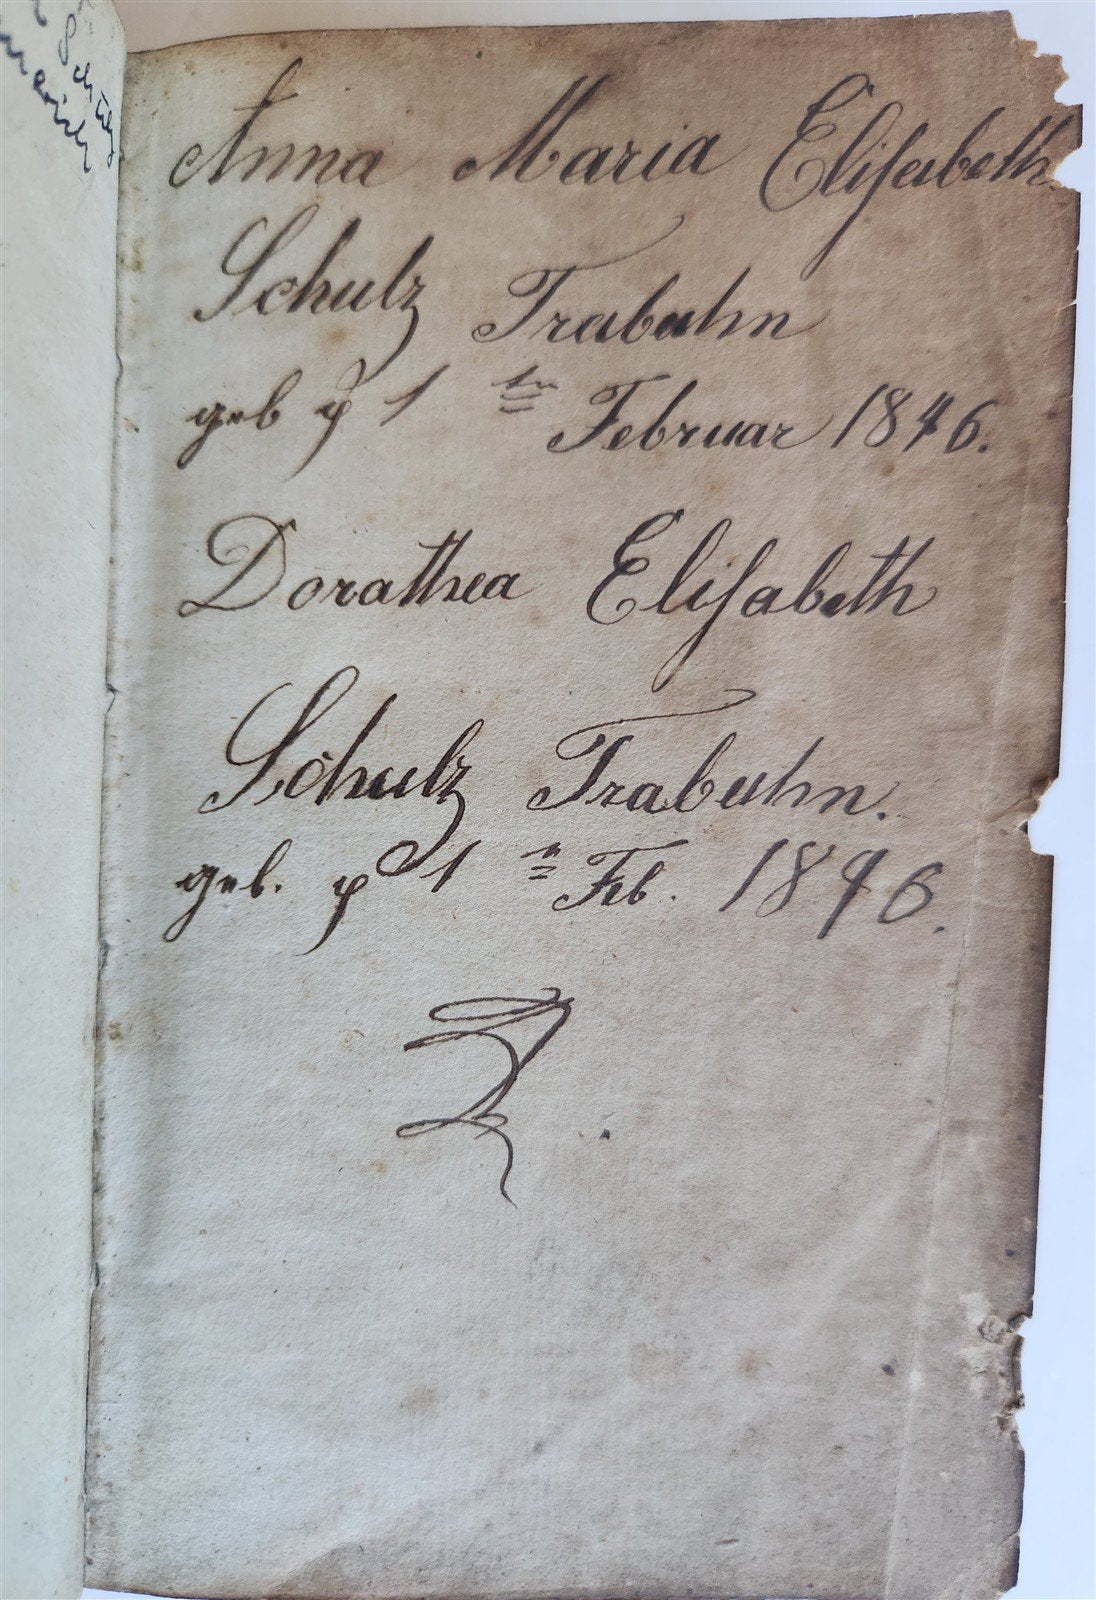 Schulz
Anna Maria Elisabeth
Schulz Trabuhn
geb d 1 ten Februar 1846.
Dorathea Elisabeth
Schulz Trabuhn.
geb. d 1 n Feb. 1846.